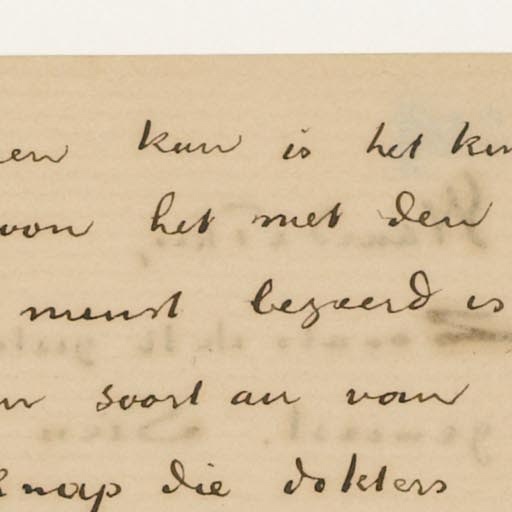 en kan is het kin
van het met den
menst bezaerd is
n soort an van
knap die dokters